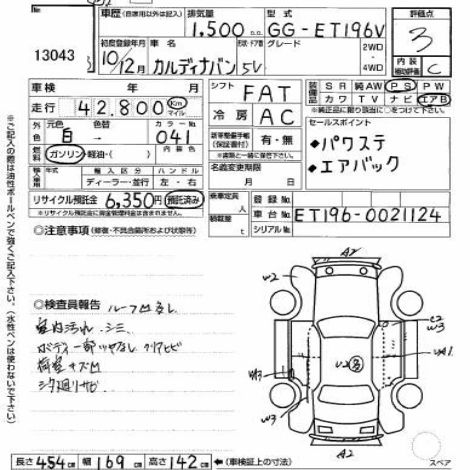 車歴 (自家用以外は記入) 排気量 型式 評価点
13043 1,500 c.c. GG-ET196V 3
初度登録年月 車名 ドア数 グレード 2WD
10/12月 カルディナバン 5V 4WD 内装 補助評価 C
車検 年 月 シフト FAT 装備 SR 純AW PS PW
走行 42,800 Km マイル カワ TV ナビ エアB
冷房 AC セールスポイント
外色 元色 白 色替 カラーNo. 041 ・パワステ
燃料 ガソリン・軽油・( ) 内装色 新車整備手帳(保証書付) 有・無 ・エアバック
輸入車 年式 輸入区分 ハンドル 名義変更期限
ディーラー・並行 左・右 月 日
リサイクル預託金 6,350円 預託済み 乗車定員 人 登録No.
※リサイクル預託金に資金管理料金は含まれません。 積載量 車台No. ET196-0021124
シリアルNo.
◎注意事項 (修復・不具合箇所および状態等)
◎検査員報告 ルーフ凹多し
室内汚れ シミ
ボディー一部ツヤなし クリアヒビ
荷室キズ凹
シタ廻りサビ
A2
W2
C2
W3
U2
YA1
W3
W3
A2
スペア
長さ 454cm 幅 169cm 高さ 142cm (車検証上の寸法)
※ご記入の際は油性ボールペンで強くご記入下さい。(水性ペンは使わないで下さい)